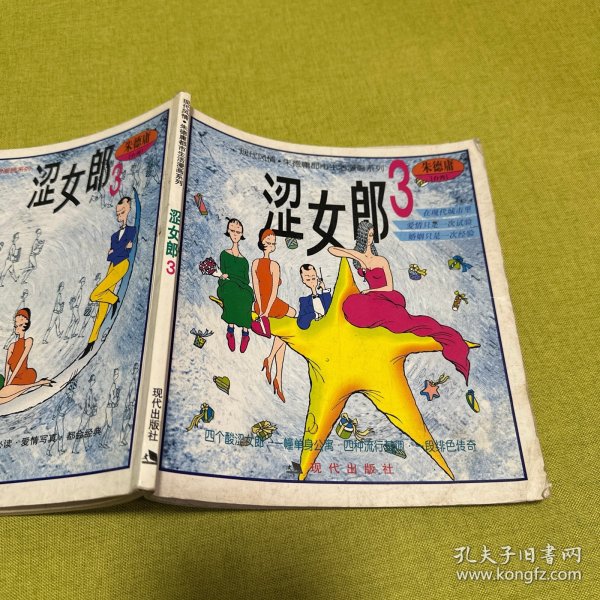 现代风情·朱德庸都市生活漫画系列
朱德庸
涩女郎3
在现代城市里
爱情只是一次试验
婚姻只是一次经验
四个酸涩女郎·一幢单身公寓·四种流行
一段绯色传奇
现代出版社
现代风情·朱德庸都市生活漫画系列
涩女郎3
现代出版社
朱德庸
涩女郎3
必读·爱情写真·都会经典
孔夫子旧书网
www.kongfz.com